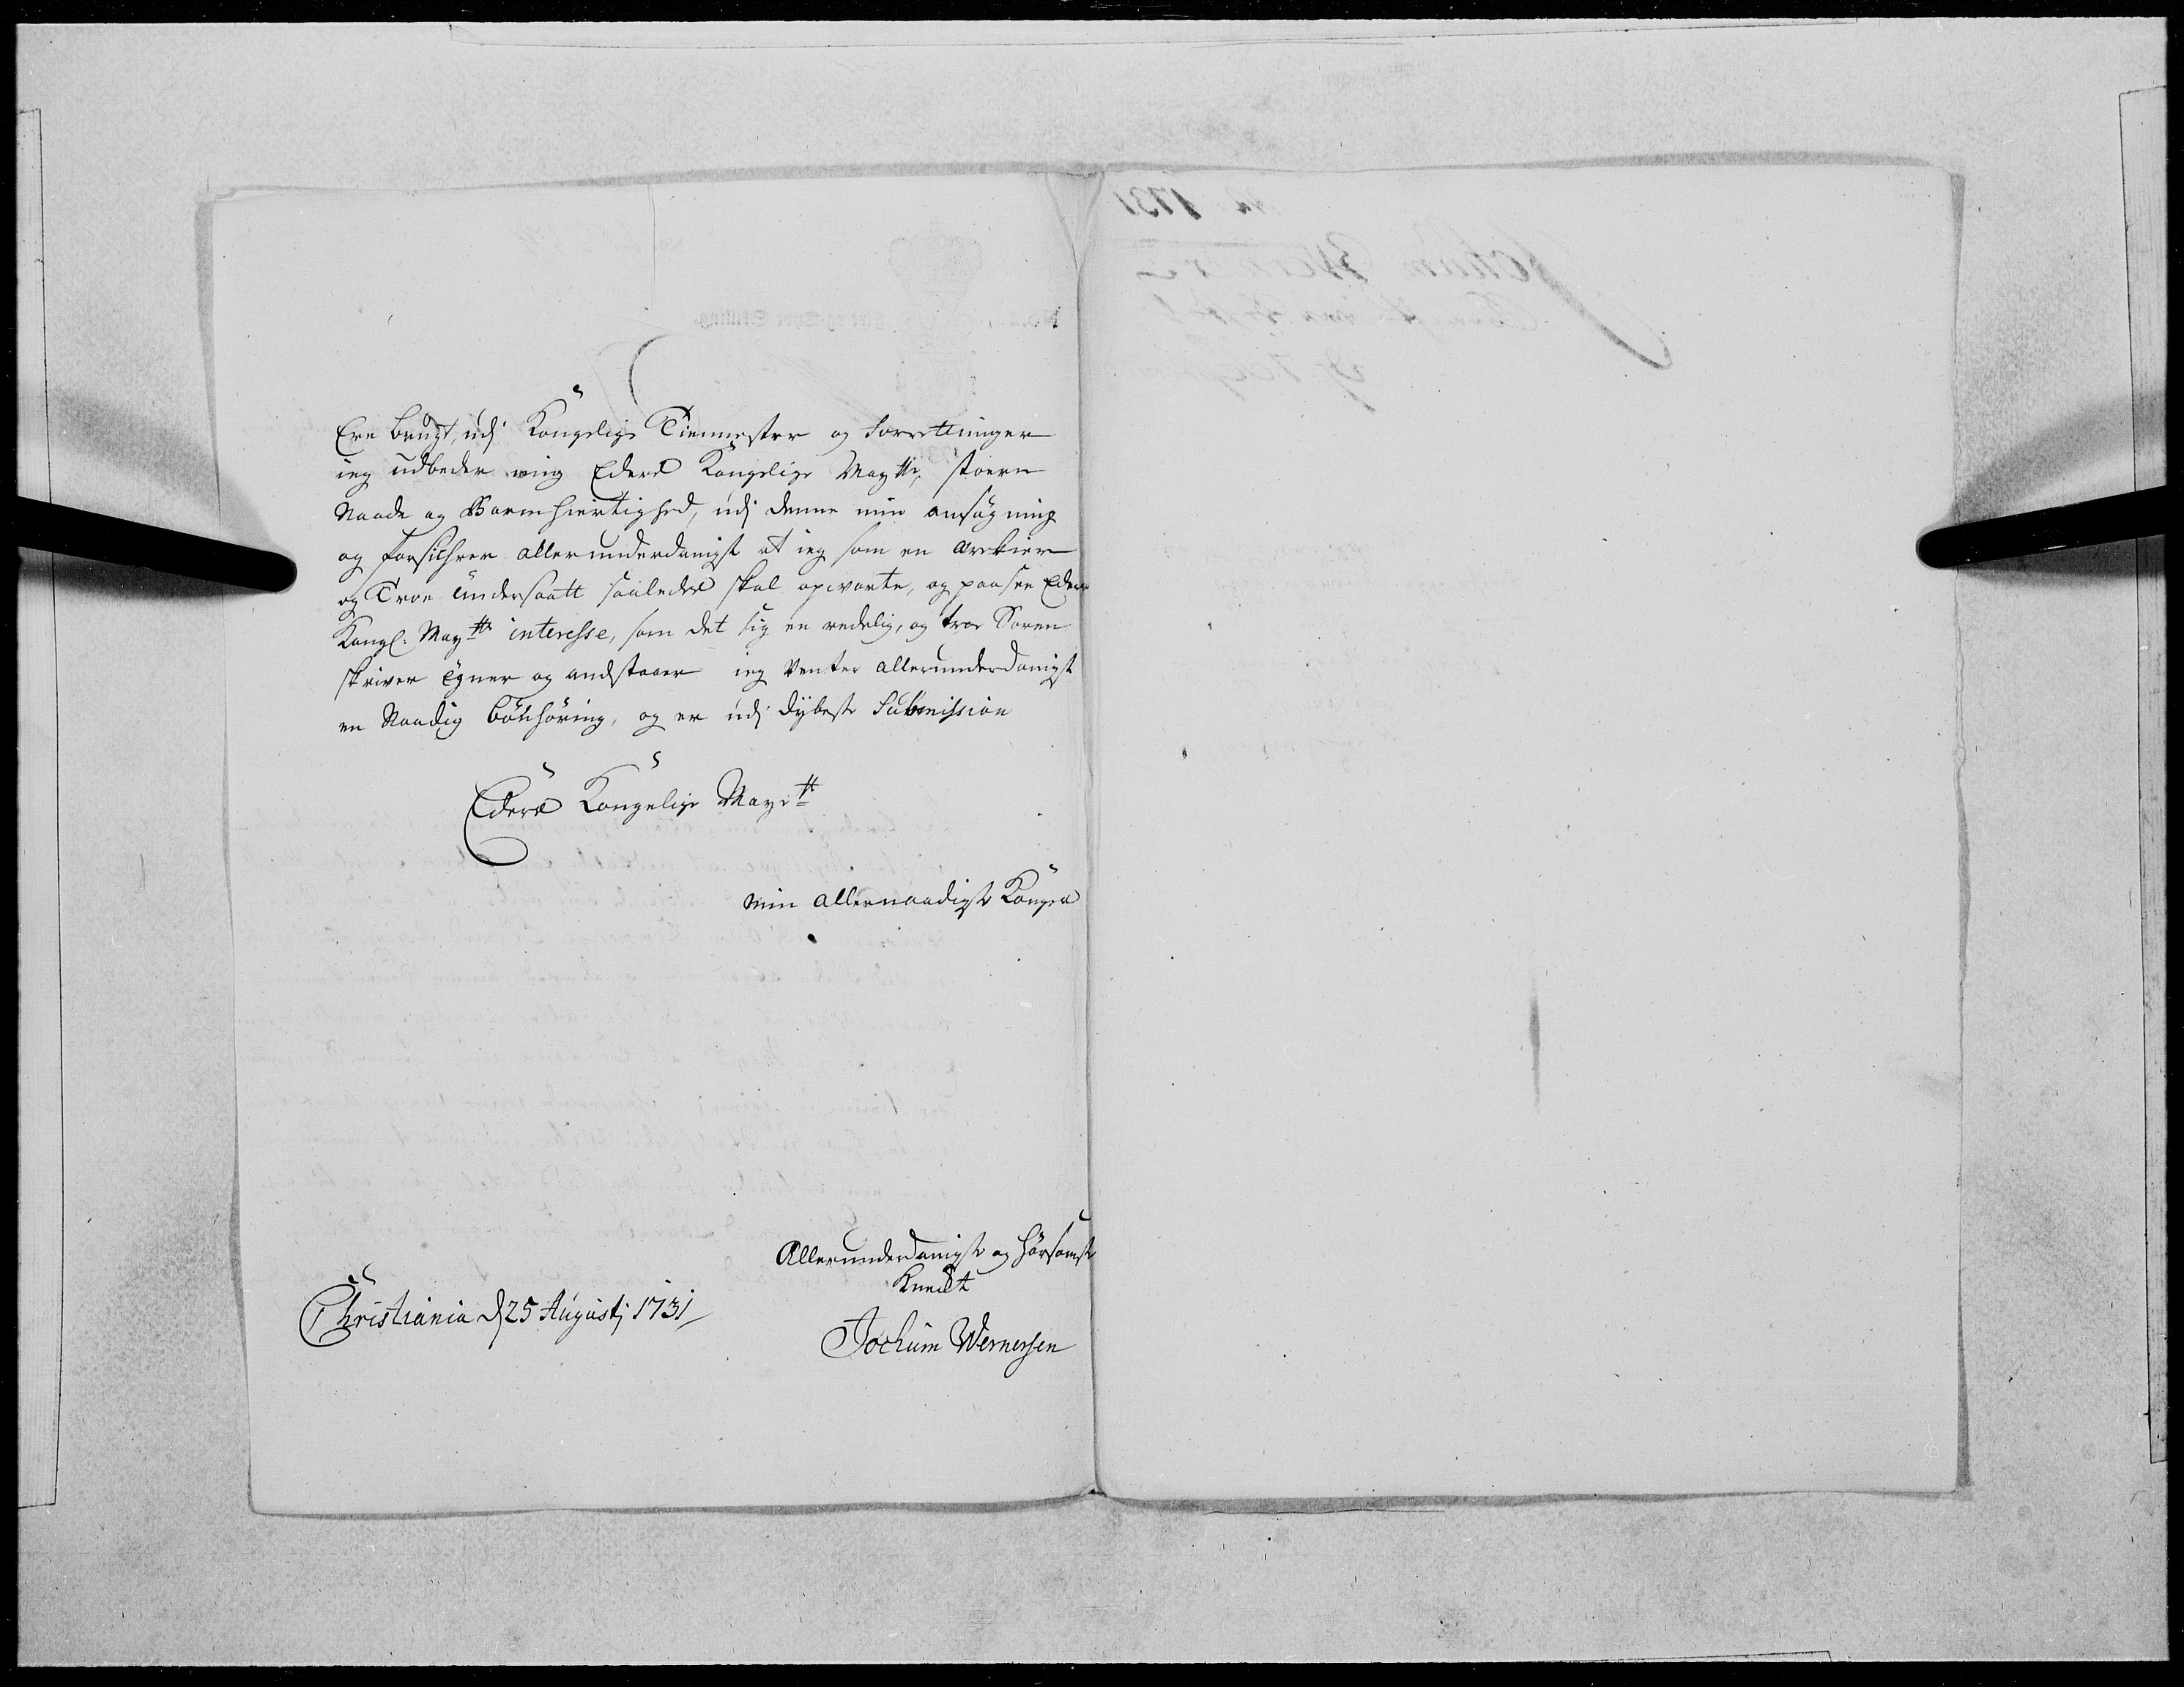 Ere brugt, udj Kongelige Tiennester og Forretninger
ieg udbeder mig Eders Kongelige Maytts, stoere
Naade og Barmhiertighed, udj denne min ansøgning
og forsichrer allerunderdanigst at ieg som en
og Troe Undersaatt saaledes skal opvarte, og paasee Eders
Kongl: Maytts interesse, som det sig en redelig, og troe Soren
skriver Egner og anstaaer ieg Venter allerunderdanigst
en Naadig bønhøring, og er udj dybeste Submission
Eders Kongelige Mayttˢ
Min allernaadigste Konges
Allerunderdanigste og hørsomste
Knecht
Christiania d 25 Augustj 1731
Jochum Wernersen